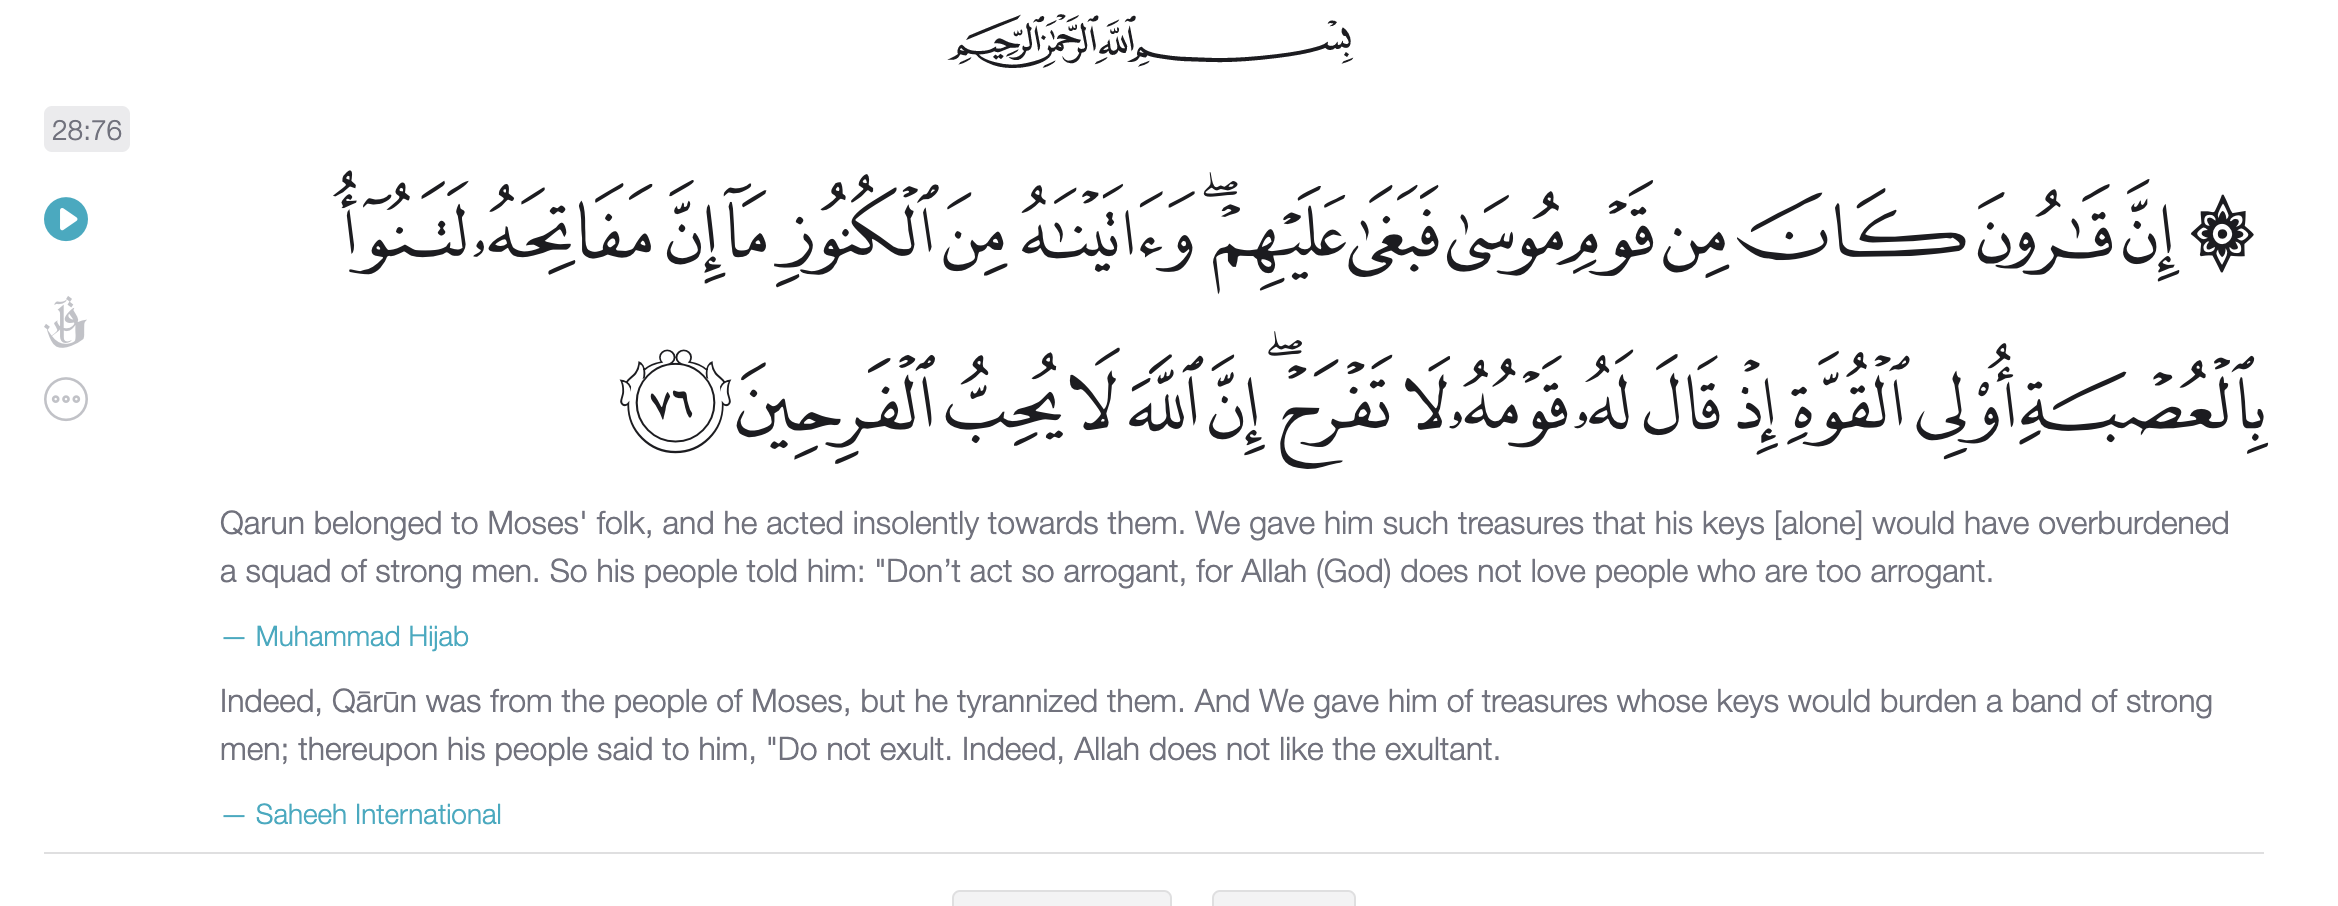 بِسْمِ ٱللَّهِ ٱلرَّحْمَٰنِ ٱلرَّحِيمِ
28:76
۞ إِنَّ قَـٰرُونَ كَانَ مِن قَوْمِ مُوسَىٰ فَبَغَىٰ عَلَيْهِمْ ۖ وَءَاتَيْنَـٰهُ مِنَ ٱلْكُنُوزِ مَآ إِنَّ مَفَاتِحَهُۥ لَتَنُوٓأُ
بِٱلْعُصْبَةِ أُو۟لِى ٱلْقُوَّةِ إِذْ قَالَ لَهُۥ قَوْمُهُۥ لَا تَفْرَحْ ۖ إِنَّ ٱللَّهَ لَا يُحِبُّ ٱلْفَرِحِينَ ٧٦
Qarun belonged to Moses' folk, and he acted insolently towards them. We gave him such treasures that his keys [alone] would have overburdened
a squad of strong men. So his people told him: "Don’t act so arrogant, for Allah (God) does not love people who are too arrogant.
— Muhammad Hijab
Indeed, Qārūn was from the people of Moses, but he tyrannized them. And We gave him of treasures whose keys would burden a band of strong
men; thereupon his people said to him, "Do not exult. Indeed, Allah does not like the exultant.
— Saheeh International